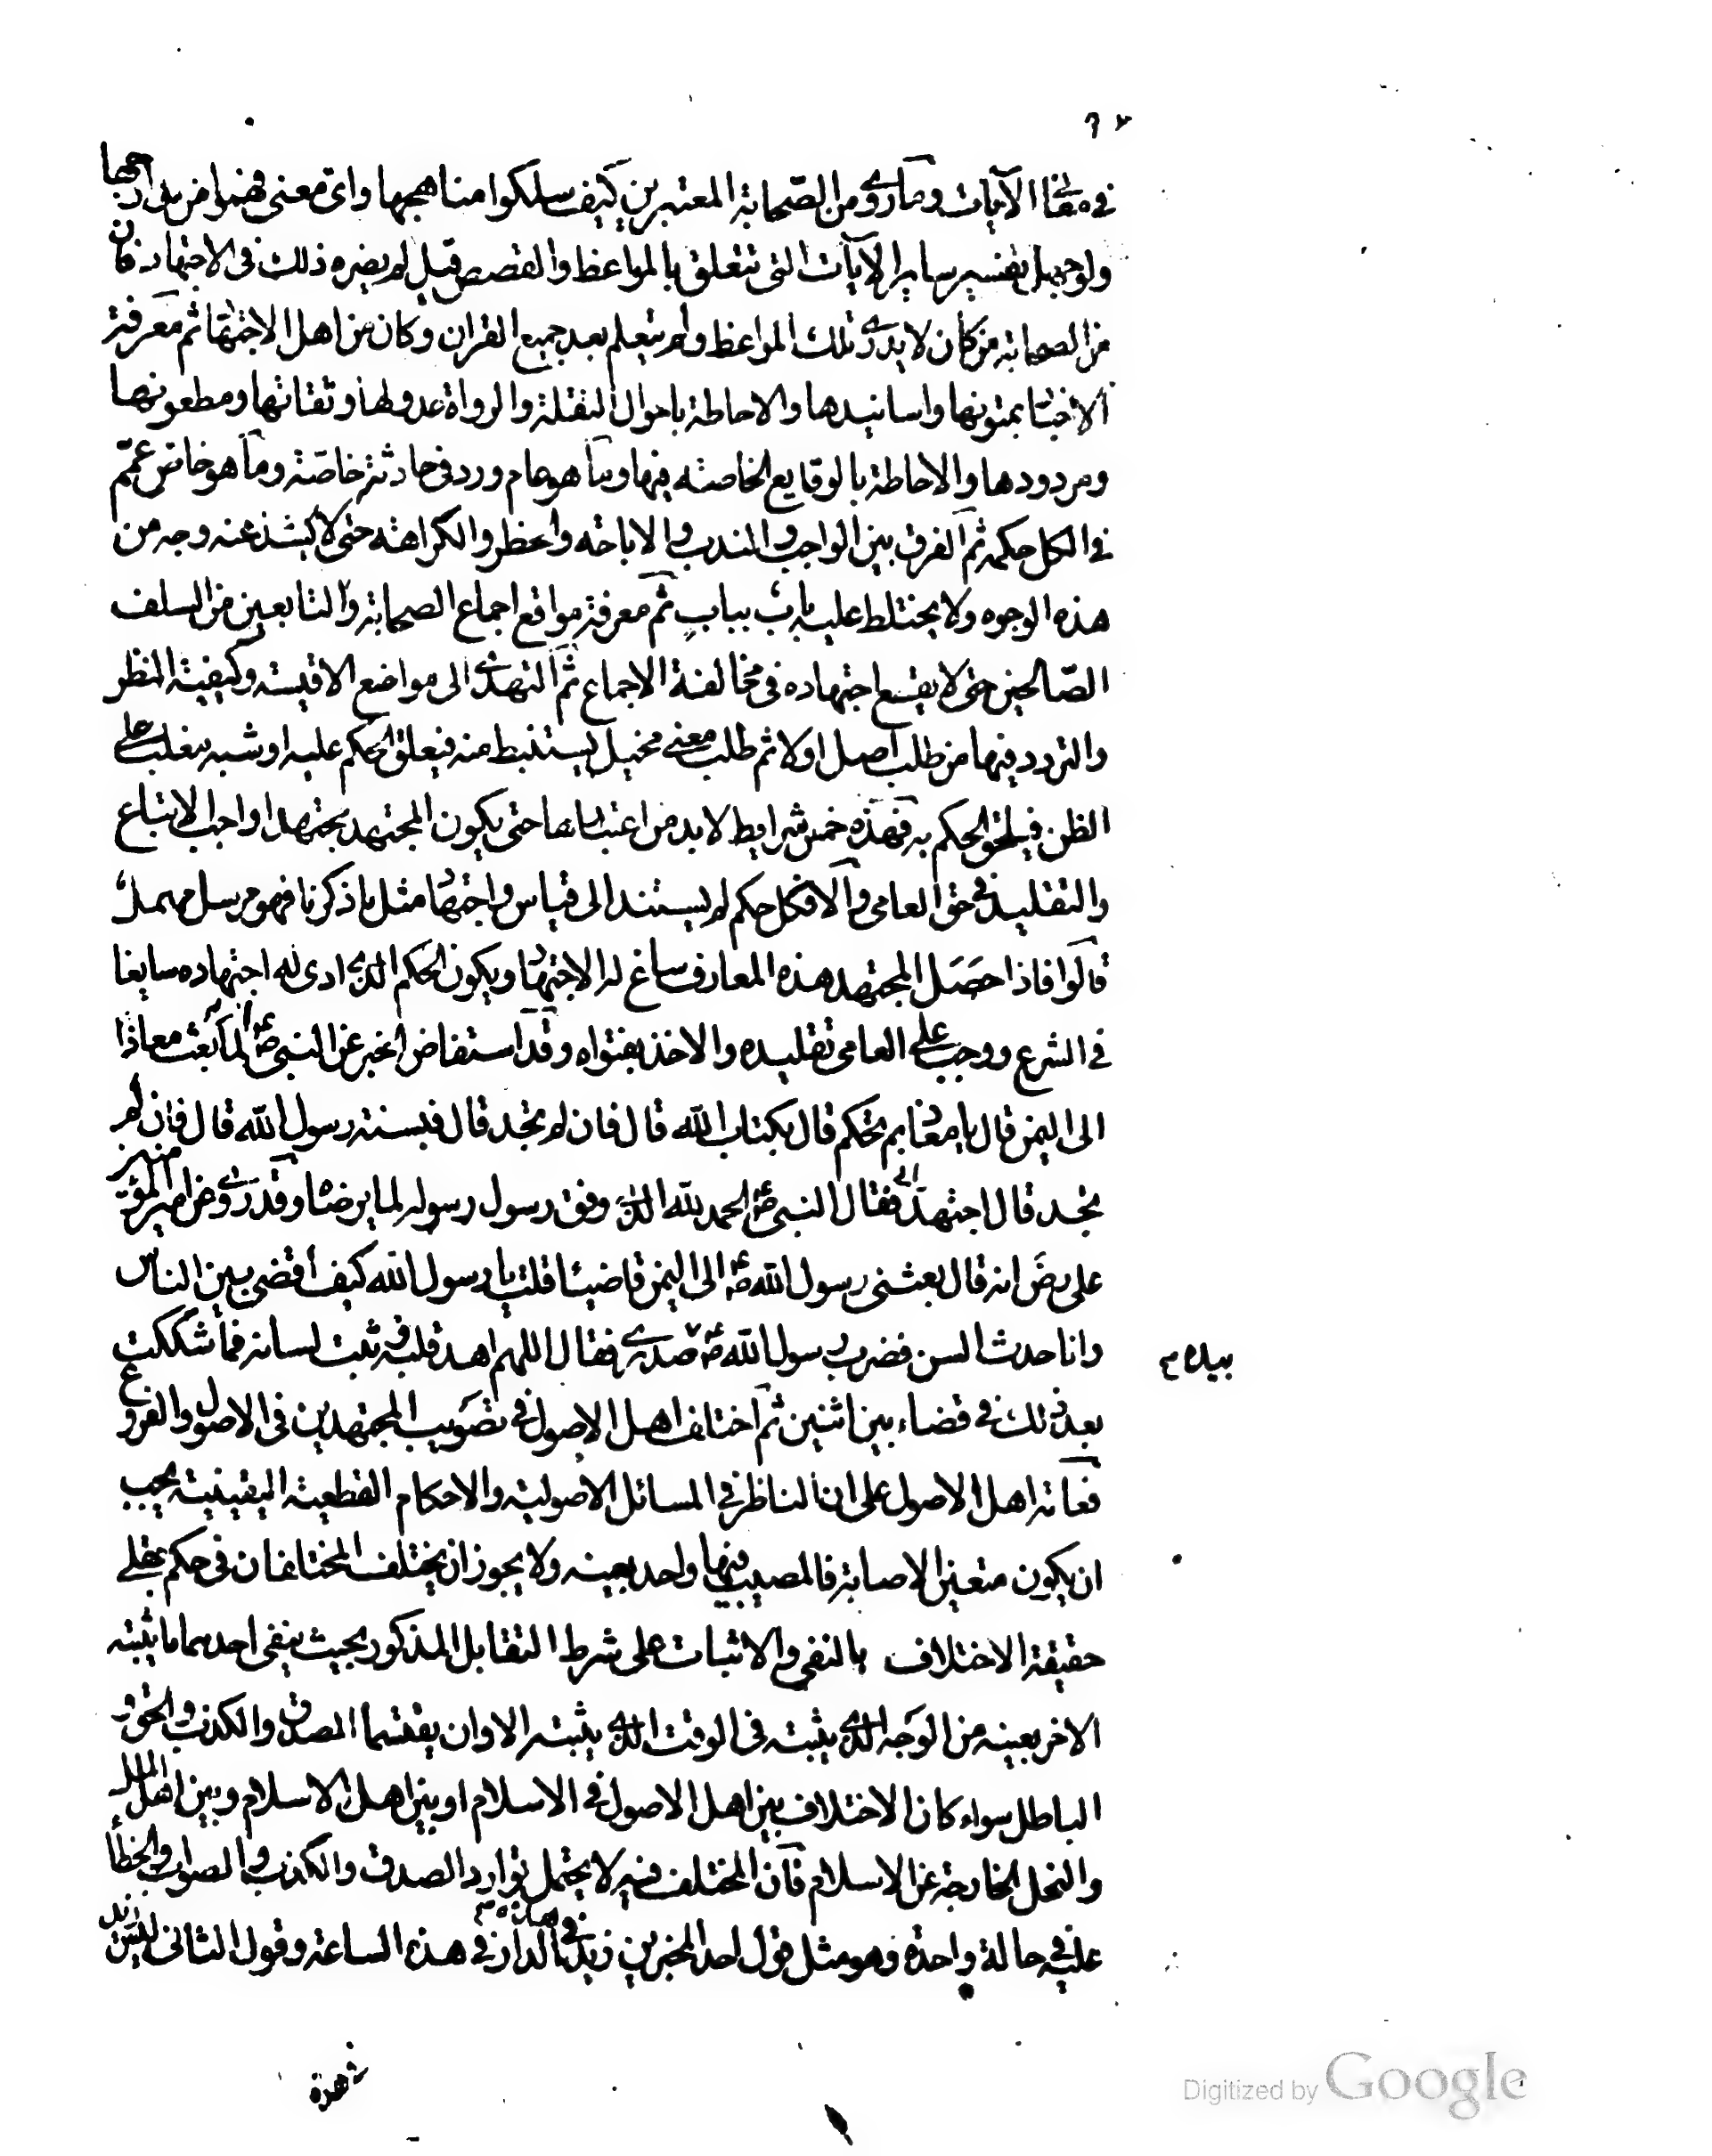 ٦٧
في معاني الآيات وما روي من الصحابة المعتبرين كيف سلكوا مناهجها واى معنى فهموا من مدارجها
ولو جهل تفسير ساير الآيات التي تتعلق بالمواعظ والقصص قيل لم يضره ذلك في الاجتهاد فان
من الصحابة من كان لا يدري تلك المواعظ ولم يتعلم بعد جميع القران وكان من اهل الاجتهاد ثم معرفة
الاخبار بمتونها واسانيدها والاحاطة باحوال النقلة والرواة عدولها وثقاتها ومطعونها
ومردودها والاحاطة بالوقايع الخاصة فيها وما هو عام ورد في حادثة خاصة وما هو خاص عمّم
في الكل حكمه ثم الفرق بين الواجب والندب والاباحة والحظر والكراهة حتى لا يشذ عنه وجه من
هذه الوجوه ولا يختلط عليه باب بباب ثم معرفة مواقع اجماع الصحابة والتابعين من السلف
الصّالحين حتى لا يقع اجتهاده في مخالفة الاجماع ثم التهدي الى مواضع الاقيسة وكيفية النظر
والتردد فيها من طلب اصل اولا ثم طلب معنى مخيل يستنبط منه فيعلق الحكم عليه او شبه يغلب على
الظن فيلحق الحكم به فهذه خمس شرايط لا بد من اعتبارها حتى يكون المجتهد مجتهدا واجب الاتباع
والتقليد في حق العامي والا فكل حكم لم يستند الى قياس واجتهاد مثل ما ذكرنا فهو مرسل مهمل
قالوا فاذا حصَل المجتهد هذه المعارف ساغ له الاجتهاد ويكون الحكم الذي ادى اليه اجتهاده سايغا
في الشرع ووجب على العامي تقليده والاخذ بفتواه وقد استفاض الخبر عن النبي صلعم انه لما بعث معاذا
الى اليمن قال يا معاذ بم تحكم قال بكتاب الله قال فان لم تجد قال فبسنة رسول الله قال فان لم
تجد قال اجتهد رأى فقال النبي صلعم الحمد لله الذي وفق رسول رسوله لما يرضاه وقد روي عن امير المؤمنين
علي رضَ انه قال بعثني رسول الله صلعم الى اليمن قاضيا قلت يا رسول الله كيف أقضي بين الناس
وانا حدث السن فضرب رسول الله صلعم صدري فقال اللهم اهد قلبه وثبت لسانه فما شككت
بيده
بعد ذلك في قضاء بين اثنين ثم اختلف اهل الاصول في تصويب المجتهدين في الاصول والفروع
فعامة اهل الاصول على ان الناظر في المسائل الاصولية والاحكام القطعية اليقينية يجب
ان يكون متعين الاصابة فالمصيب فيها واحد بعينه ولا يجوز ان يختلف المختلفان في حكم عقلي
حقيقة الاختلاف بالنفي والاثبات على شرط التقابل المذكور بحيث ينفى احدهما ما يثبته
الاخر بعينه من الوَجه الذي يثبته في الوقت الذي يثبته الا وان يقتسما الصدق والكذب والحق و
الباطل سواء كان الاختلاف بين اهل الاصول في الاسلام او بين اهل الاسلام وبين اهل الملل
والنحل الخارجة عن الاسلام فان المختلف فيه لا يحتمل توارد الصدق والكذب والصواب والخطأ
عليه في حالة واحدة وهو مثل قول احد المخبرين زيد في هذه الدار في هذه الساعة وقول الثاني ليس زيد
هذه
Digitized by Google